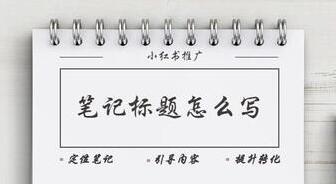 小红书推广
笔记标题怎么写
· 定位笔记 · 引导内容 · 提升转化